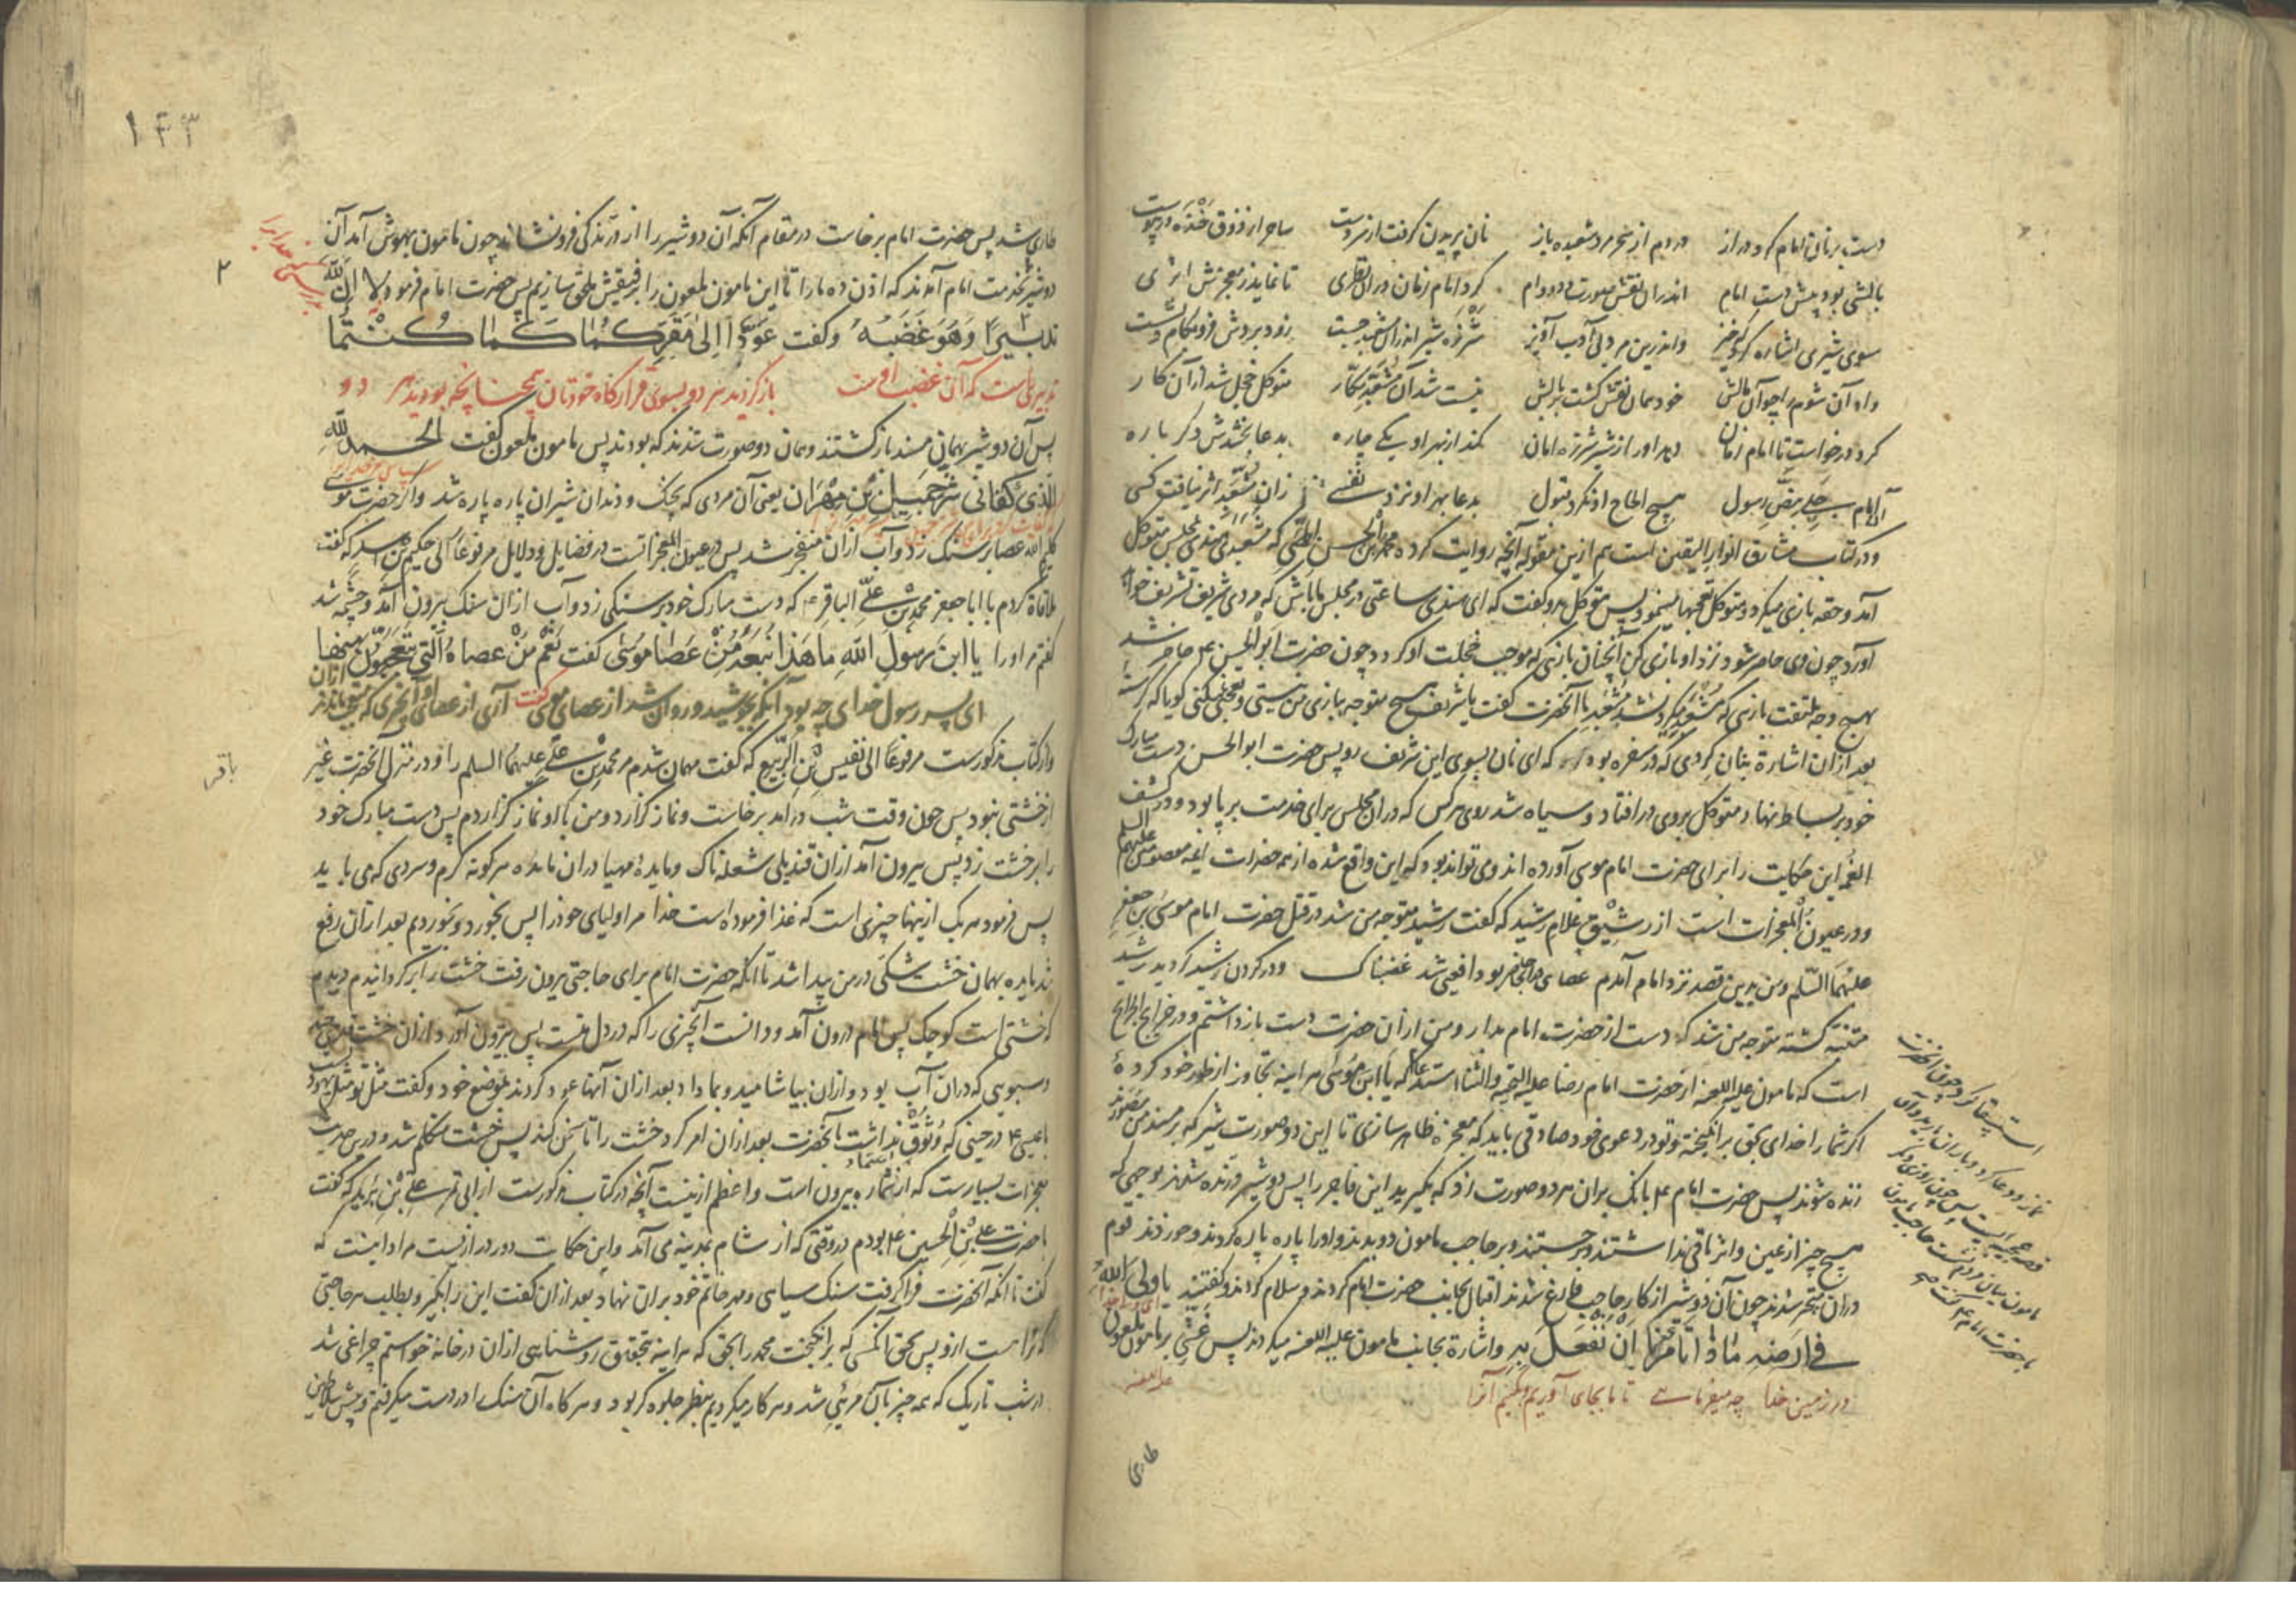 دست بر نان امام کرد دراز دردم از سحر مرد شعبده باز نان پریدن گرفت از سر دست ساحر از ذوق خنده در پیوست
بالشی بود پیش دست امام اندران نقش صورت دد و دام کرد امام زمان دران نظری تا نماید ز معجزش اثری
سوی شیری اشاره کرد که خیز واندرین مرد بی ادب آویز شرزه شیر اندران شعبد جست زود بردش فرو بکام و نشست
واو آن شوم را چو آن مالش خود همان نقش گشت بر بالش نیست شد آن مشعبد مکار متوکل خجل شد از آن کار
کرد درخواست تا امام زمان دهد اورا ز شیر شرزه امان کند از بهر او یکی چاره بدعا بخشدش دگر باره
آن امام بحق بنص رسول هیچ الحاح او نکرد قبول بدعا بهر او نزد نفسی زان مشعبد اثر نیافت کسی
ودر کتاب مشارق انوار الیقین است هم ازین مقوله آنچه روایت کرده محمد بن الحسن که مشعبدی هندی بمجلس متوکل
آمد وحقه بازی میکرد ومتوکل تعجبها مینمود پس متوکل بدو گفت که ای هندی ساعتی در مجلس ما باش که مردی شریف تشریف خواهد
آورد چون وی حاضر شود نزد او بازی کن آنچنان بازی که موجب خجلت او گردد چون حضرت ابو الحسن ع حاضر شد
بهیچ وجه ملتفت بازی که مشعبد میکرد نشد مشعبد با آنحضرت گفت یا شریف هیچ متوجه ببازی من نیستی وتعجب نمیکنی گویا که گرسنه
بعد از آن اشارة بنان گردی که در سفره بود کرد که ای نان بسوی این شریف رو پس حضرت ابو الحسن دست مبارک
خود بر بساط نهاد متوکل بروی درافتاد وسیاه شد روی هرکس که دران مجلس برای خدمت برپا بود ودر کشف
الغمه این حکایت را برای حضرت امام موسی آورده اند ومی تواند بود که این واقع شده از همه حضرات ائمه معصومین علیهم السلم
ودر عیون المعجزات است از رشیق غلام رشید که گفت رشید متوجه من شد در قتل حضرت امام موسی بن جعفر
علیهما السلم ومن بدین قصد نزد امام آمدم عصای حاضر بود افعی شد غضبناک ودر گردن رشید گردید رشید
متنبه گشته متوجه من شد که دست از حضرت امام بدار ومن از آن حضرت دست باز داشتم ودر خرایج الجرایح
است که مامون علیه اللعنه از حضرت امام رضا علیه التحیه والثنا استدعا که یا ابن موسی هر اینه تجاوز از طور خود کردهٔ
اگر شما را خدای بحق برانگیخته وتو در دعوی خود صادقی باید که معجزه ظاهر سازی تا این دو صورت شیر که بر مسند من مصورند
زنده شوند پس حضرت امام ع بانگ بران هر دو صورت زد که بگیرید این فاجر را پس دو شیر درنده شدند بوجهی که
هیچ چیز از عین واثر باقی نداشتند وبرجستند وبر حاجب مامون دویدند واورا پاره پاره کردند وخوردند قوم
دران متحیر شدند چون آن دو شیر از کار حاجب فارغ شدند اقبال بجانب حضرت امام کردند وسلام کردند وگفتند یا ولی الله
فی ارضه ماذا تأمرنا ان نفعل به واشارة بجانب مامون علیه اللعنه میکردند پس غشی بر مامون ملعون
در زمین خدا چه میفرمائی تا ما بجای آوریم آنرا
طاری
استسقا کرد چون آنحضرت
نماز ودعا کرد وباران بارید
مامون حاجب مامون
با حضرت امام ع گفت
۱۴۳
طاری شد پس حضرت امام برخاست در مقام آنکه آن دو شیر را از درندگی فرونشاند چون مامون بهوش آمد آن
دو شیر بخدمت امام آمدند که اذن ده مارا تا این مامون ملعون را برفیقش ملحق سازیم پس حضرت امام فرمود لا ان لله
۲
تدبیرا وهو غضبه وگفت عودا الی مقرکما کما کنتما
تدبیری است که آن غضب اوست باز گردید هر دو بسوی قرارگاه خودتان همچنانچه بودید هر دو
پس آن دو شیر بهمانی مسند باز گشتند وهمان دو صورت شدند که بودند پس مامون ملعون گفت الحمد لله
الذی کفانی شر حمید بن مهران یعنی آن مردی که بچنگ ودندان شیران پاره پاره شد واگر حضرت موسی
کلیم الله عصا بر سنگ زد وآب ازان منفجر شد پس در عیون المعجزات است در فضایل ودلایل مرفوعا الی حکیم بن که گفت
ملاقاة کردم با ابا جعفر محمد بن علی الباقر ع که دست مبارک خود بر سنگی زد وآب ازان سنگ بیرون آمد وچشمه شد
گفتم مر اورا یا ابن رسول الله ما هذا گفت نعم من عصاه التی تتعجبون منها
ای پسر رسول خدا چه بود آنکه جوشید وروان شد از عصای موسی گفت آری از عصای او آنچیزی که متعجبند ازان
ودر کتاب مذکورست مرفوعا الی نفیس بن الربیع که گفت مهمان شدم مر محمد بن علی علیهما السلم را ودر منزل آنحضرت غیر
باقر
از خشتی نبود پس چون وقت شب درآمد برخاست ونماز گزارد ومن با او نماز گزاردم پس دست مبارک خود
را بر خشت زد پس بیرون آمد ازان قندیلی شعله ناک ومایدهٔ مهیا دران مایده هر گونه گرم وسردی که می باید
پس فرمود هر یک ازینها چیزی است که غذا فرموده است خدا مر اولیای خود را پس بخورد وبخوردم بعد از آن رفع
شد مایده بهمان خشت شکی در من پیدا شد تا آنکه حضرت امام برای حاجتی بیرون رفت خشت را برگردانیدم دیدم
که خشتی است کوچک پس امام درون آمد ودانست آنچیزی را که در دل منست پس بیرون آورد ازان خشت
وسبویی که دران آب بود وازان بیاشامید وبما داد بعد ازان آنها عود کردند بموضع خود وگفت مثل تو مثل یهود
با عیسی ع در حینی که وثوق نداشت آنحضرت بعد ازان امر کرد خشت را تا سخن کند پس خشت متکلم شد
معجزات بسیارست که از شماره بیرون است واعظم ازینست آنچه در کتاب مذکورست از علی بن یزید که گفت
با حضرت علی بن الحسین ع بودم در وقتی که از شام بمدینه می آمد واین حکایت دور درازست مراد اینست که
گفت تا آنکه آنحضرت فرا گرفت سنگ سیاهی ومهر خاتم خود بران نهاد بعد ازان گفت این را بگیر وبطلب هر حاجتی
که ترا هست ازو پس بحق آنکسی که برانگیخت محمد را بحق که هر اینه بتحقیق روشنایی ازان در خانه خواستم چراغی شد
در شب تاریک که همه چیز بآن مرئی شد وهر کار میکردیم بنظر جلوه گر بود وهر گاه آن سنگ را در دست میگرفتم وپیش سلاطین